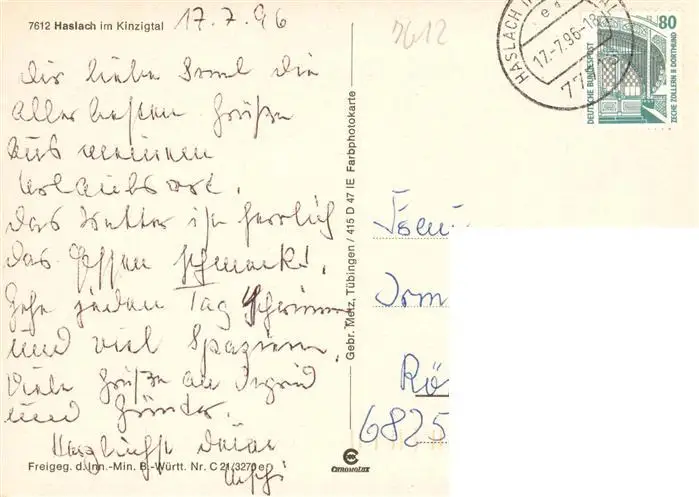 7612 Haslach im Kinzigtal
17.7.96
7612
Dir liebe die
aller besten Grüße
aus meinem
Urlaubsort.
das Wetter ist herrlich
das Essen schmeckt.
Gehe jeden Tag schwimmen
und viel Spazieren.
Viele Grüße an Ingrid
und Günter.
Herzlichst deine
Uschi
Freigeg. d. Inn.-Min. B.-Württ. Nr. C 21/3270 e
Gebr. Metz, Tübingen / 415 D 47 IE Farbphotokarte
CHROMOLUX
HASLACH
17.-7.96-18
77
80
DEUTSCHE BUNDESPOST
ZECHE ZOLLERN II DORTMUND
Frau
Irm
Rö
6825